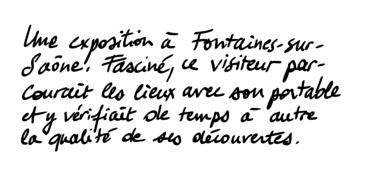 Une exposition à Fontaines-sur-
Saône. Fasciné, ce visiteur par-
courait les lieux avec son portable
et y vérifiait de temps à autre
la qualité de ses découvertes.